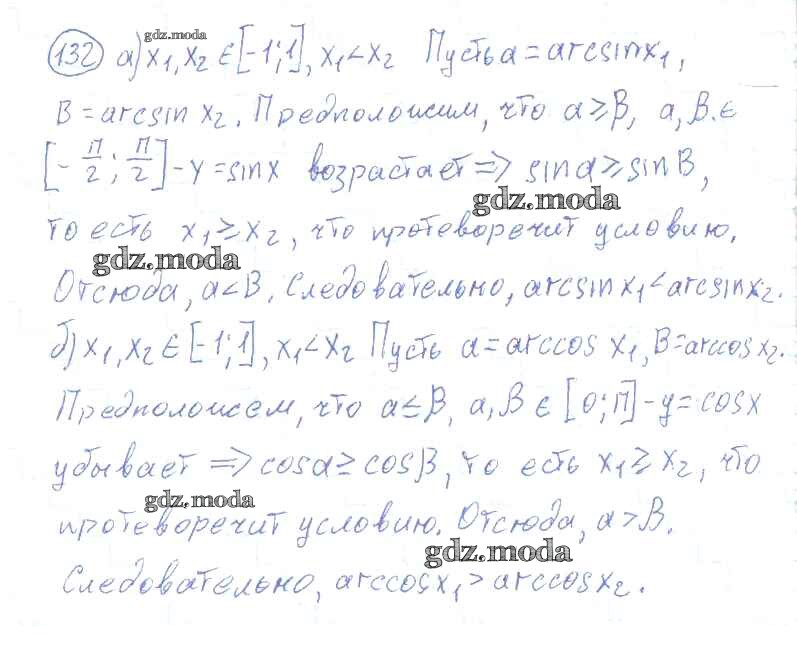 gdz.moda
132 а) x₁, x₂ ∈ [-1; 1], x₁ < x₂ Пусть a = arcsin x₁,
B = arcsin x₂. Предположим, что a ≥ β, a, β ∈
[-π/2; π/2] - y = sin x возрастает ⇒ sin a ≥ sin B,
gdz.moda
то есть x₁ ≥ x₂, что протеворечит условию.
gdz.moda
Отсюда, a < B, Следовательно, arcsin x₁ < arcsin x₂.
б) x₁, x₂ ∈ [-1; 1], x₁ < x₂ Пусть a = arccos x₁, B = arccos x₂.
Предположем, что a ≤ β, a, β ∈ [0; π] - y = cos x
убывает ⇒ cos a ≥ cos β, то есть x₁ ≥ x₂, что
gdz.moda
протеворечит условию. Отсюда, a > B.
gdz.moda
Следовательно, arccos x₁ > arccos x₂.